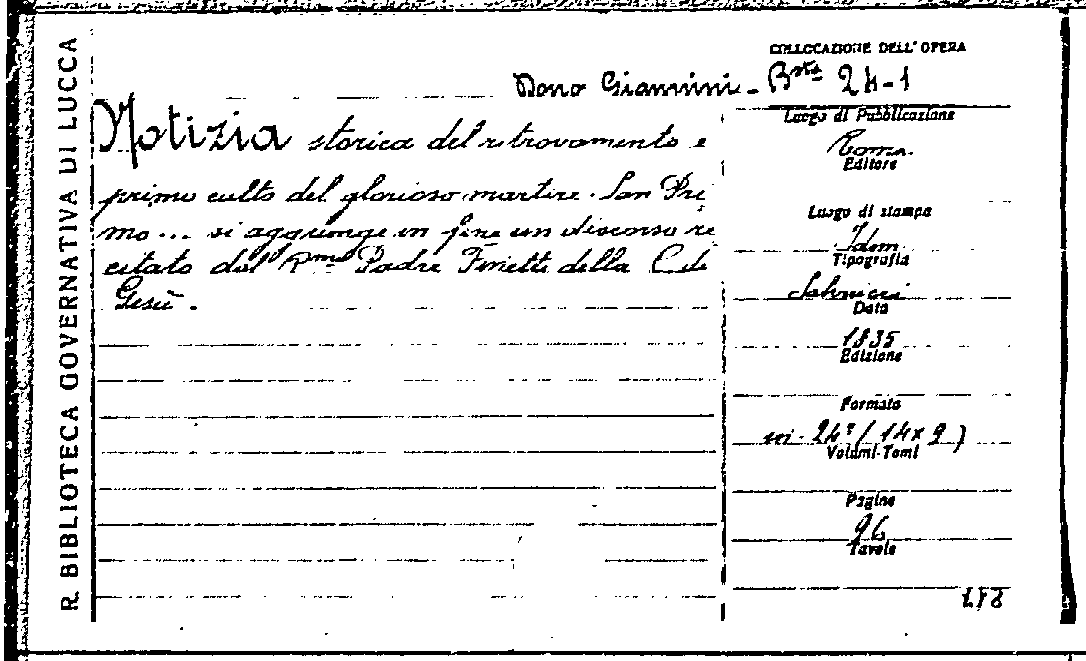 R. BIBLIOTECA GOVERNATIVA DI LUCCA
COLLOCAZIONE DELL'OPERA
Dono Giannini - Bsta 24-1
Notizia storica del ritrovamento e
primo culto del glorioso martire San Pri
mo... si aggiunge in fine un discorso re
citato dal Rmo Padre Finetti della C. di
Gesù.
Luogo di Pubblicazione
Roma
Editore
Luogo di stampa
Idem
Tipografia
Salviucci
Data
1835
Edizione
Formato
in-24° (14x9)
Volumi-Tomi
Pagine
96
Tavole